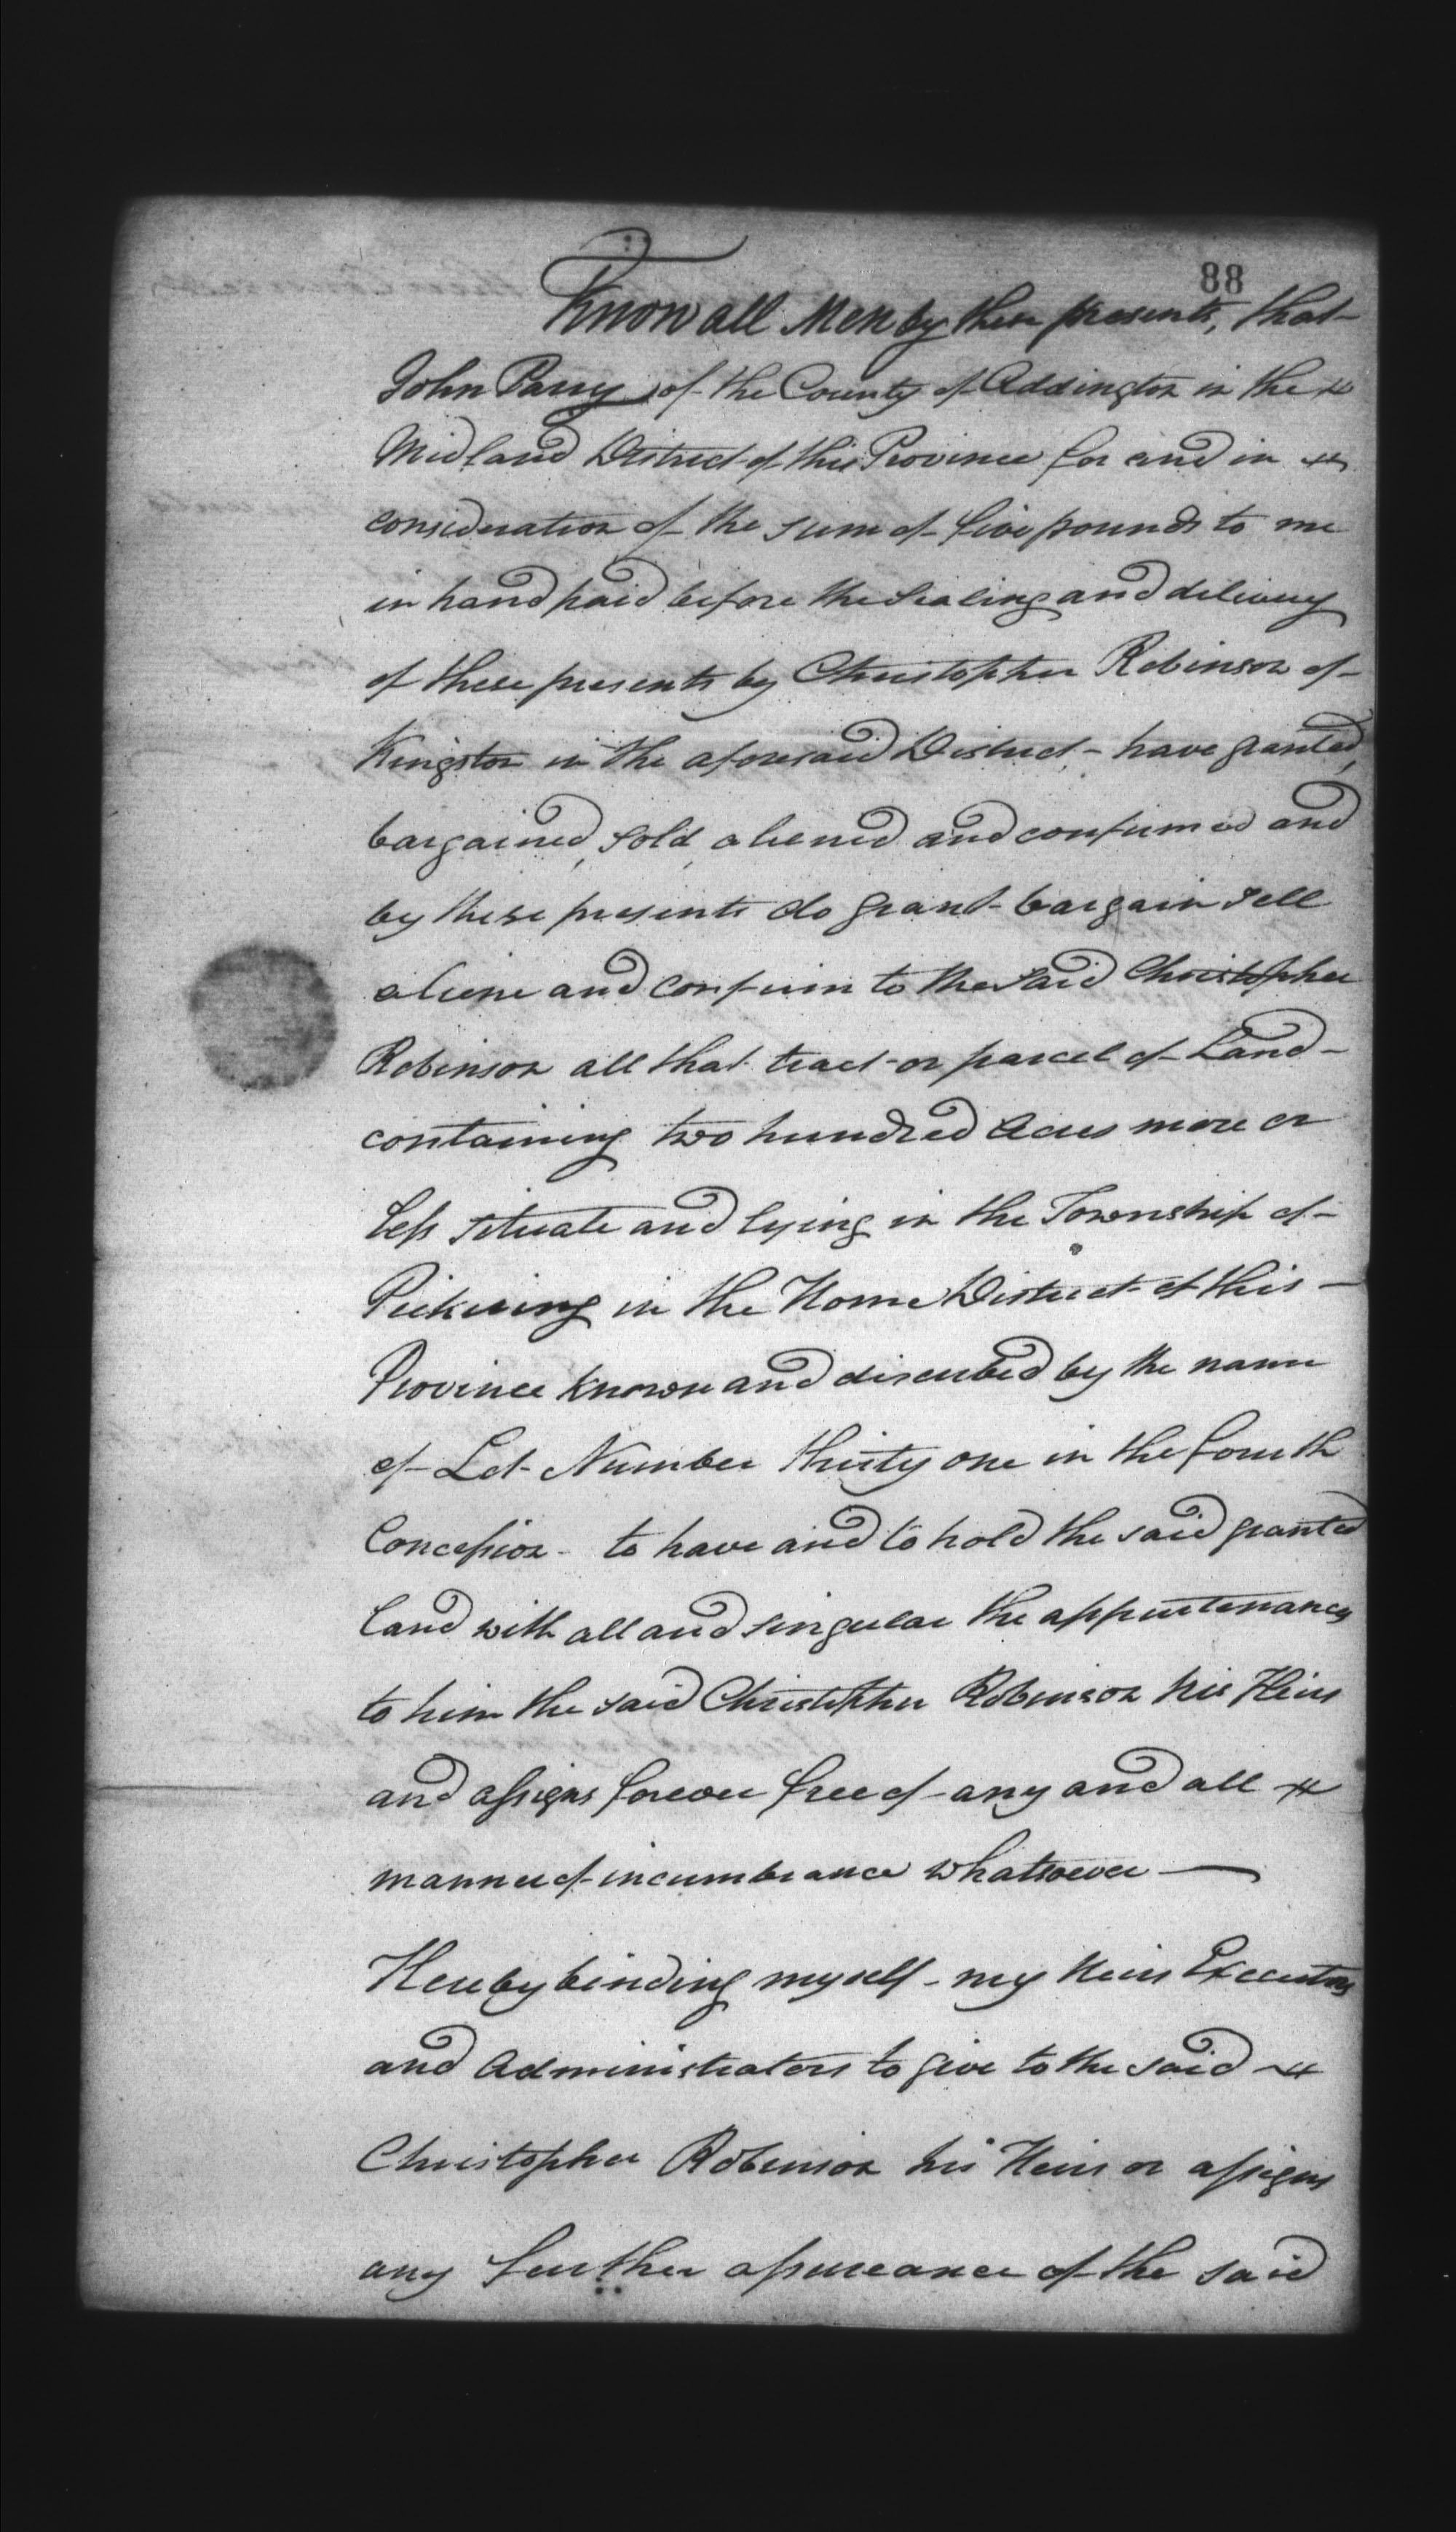 88
Know all Men by these presents, that
John Parry of the County of Addington in the
Midland District of this Province for and in
consideration of the sum of five pounds to me
in hand paid before the Sealing and delivery
of these presents by Christopher Robinson of
Kingston in the aforesaid District - have granted,
bargained, sold, aliened and confirmed and
by these presents do grant bargain sell
aliene and confirm to the said Christopher
Robinson all that tract or parcel of Land -
containing two hundred Acres more or
Less situate and lying in the Township of -
Pickering in the Home District of this -
Province known and discribed by the name
of Lot Number thirty one in the fourth
Concession - to have and to hold the said granted
Land with all and singular the appurtenances
to him the said Christopher Robinson his Heirs
and assigns forever free of any and all
manner of incumbrance whatsoever —
Hereby binding myself - my Heirs Executors
and Administrators to give to the said
Christopher Robinson his Heirs or assigns
any further assureance of the said